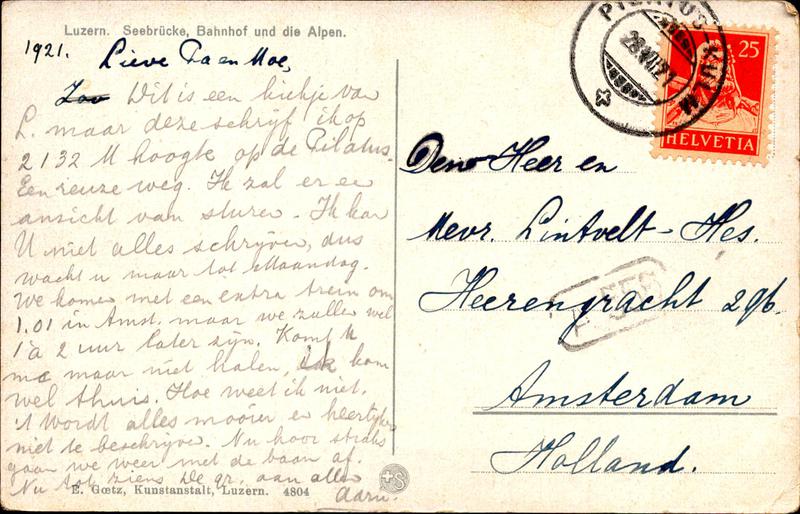 Luzern. Seebrücke, Bahnhof und die Alpen.
1921.
Lieve Pa en Moe,
Dit is een kiekje van
L. maar deze schrijf ik op
2132 M hoogte op de Pilatus.
Een reuze weg. Ik zal er een
ansicht van sturen. Ik kan
U niet alles schrijven, dus
wacht u maar tot Maandag.
We komen met een extra trein om
1.01 in Amst. maar we zullen wel
1 à 2 uur later zijn. Komt U
me maar niet halen, ik kom
wel thuis. Hoe weet ik niet.
't Wordt alles mooier en heerlijker
niet te beschrijven. Nu hoor straks
gaan we weer met de baan af.
Nu tot ziens De gr. aan allen
E. Gœtz, Kunstanstalt, Luzern. 4804
PILATUS-KULM
25
HELVETIA
Den Heer en
Mevr. Lintvelt-Hes.
Heerengracht 296.
Amsterdam
Holland.